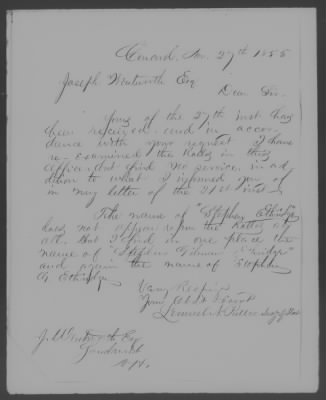 Concord, Nov. 27th 1855
Joseph Wentworth Esq
Dear Sir.
Yours of the 27th inst has
been received and in accor-
dance with your request I have
re-examined the Rolls in this
office, and find no service in ad-
dition to what I informed you of
in my letter of the 21st inst.
The name of "Stephen Ethridge"
does not appear upon the Rolls at
all. But I find in one place the
name of "Stephen
and again the name of Stephen
G. Ethridge
Very Resp
Your Obdt Servt
J. Wentworth Esq
Sandwich
N.H.